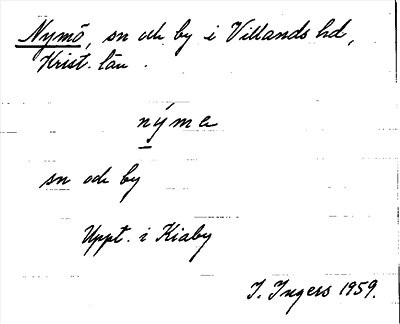 Nymö, sn och by i Villands hd,
Krist. län.
nýmə
sn och by
Uppt. i Kiaby
I. Ingers 1959.